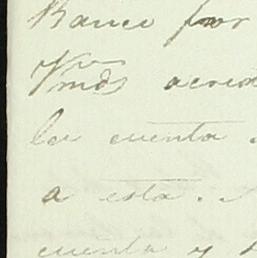 Banco por
Vmds acred
la cuenta
a esta.
cuenta y